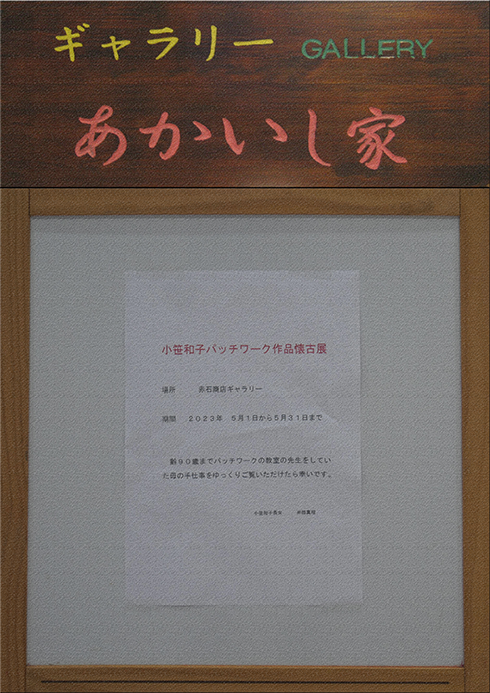 ギャラリー GALLERY
あかいし家
小笹和子パッチワーク作品懐古展
場所 赤石商店ギャラリー
期間 2023年 5月1日から5月31日まで
齢90歳までパッチワークの教室の先生をしてい
た母の手仕事をゆっくりご覧いただけたら幸いです。
小笹和子長女